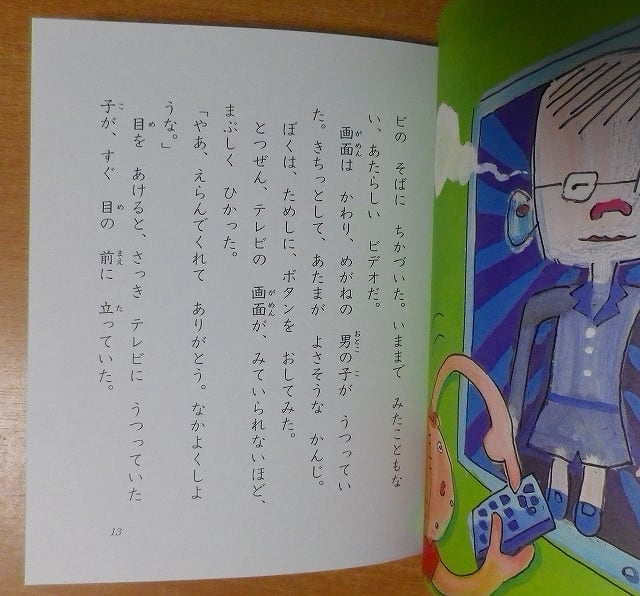 ビの そばに ちかづいた。いままで みたこともな
い、あたらしい ビデオだ。
画面は かわり、めがねの 男の子が うつってい
た。きちっとして、あたまが よさそうな かんじ。
ぼくは、ためしに、ボタンを おしてみた。
とつぜん、テレビの 画面が、みていられないほど、
まぶしく ひかった。
「やあ、えらんでくれて ありがとう。なかよくしよ
うな。」
目を あけると、さっき テレビに うつっていた
子が、すぐ 目の 前に 立っていた。
13